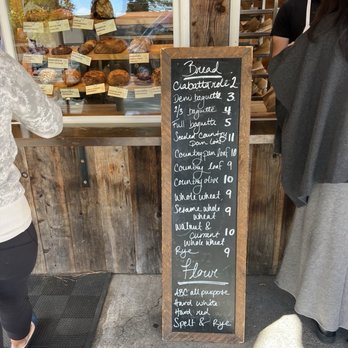 Bread
Ciabatta roll 2
Demi baguette 3
2/3 baguette 4
Full baguette 5
Seeded Country
Pan Loaf 11
Country pan loaf 10
Country loaf 9
Country olive 10
Whole wheat 9
Sesame whole
wheat 9
Walnut &
currant 10
Whole wheat
Rye 9
Flour
ABC all purpose
Hard white
Hard red
Spelt & Rye